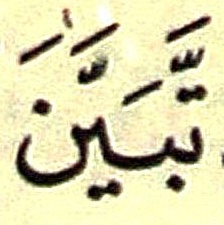 تَّبَيَّنَ